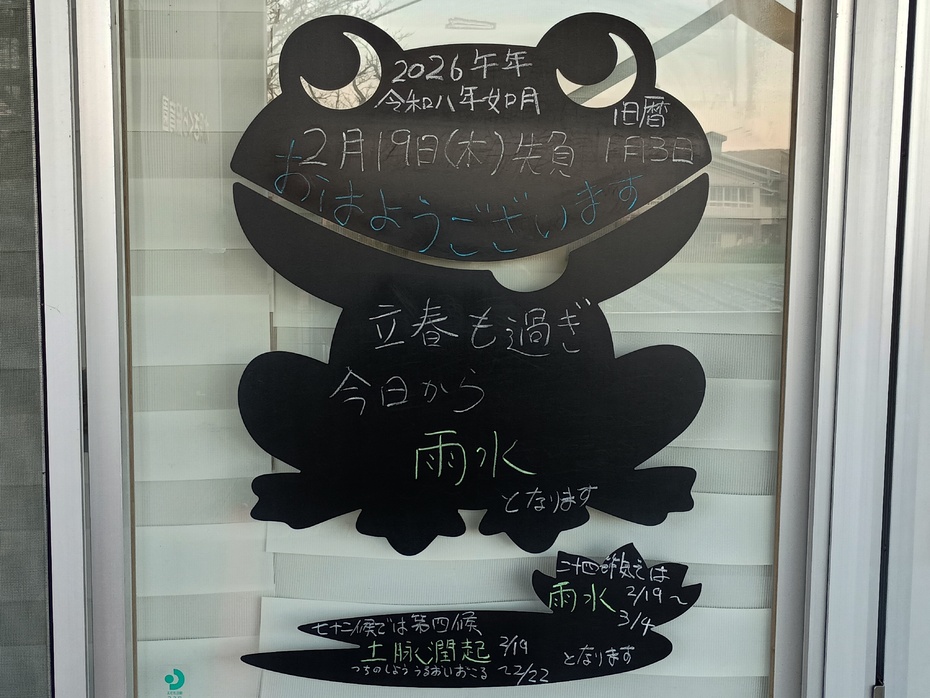 2026午年
令和八年如月
旧暦
2月19日(木)先負 1月3日
おはようございます
立春も過ぎ
今日から
雨水
となります
二十四節気では
雨水 2/19~
3/4
となります
七十二候では第四候
土脉潤起 2/19
つちのしょううるおいおこる ~2/22